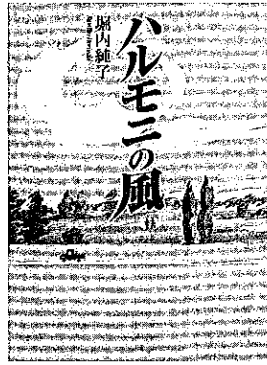 ハルモニの風
堀内純子